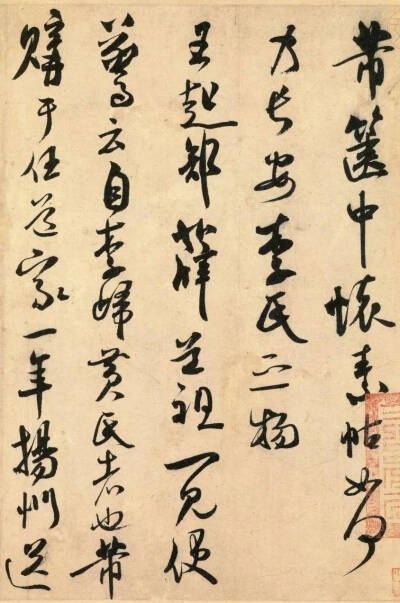 芾篋中懷素帖如何
乃長安李氏之物
王起部薛道祖一見便
驚云自李歸黃氏者也芾
購于任道家一年揚州送